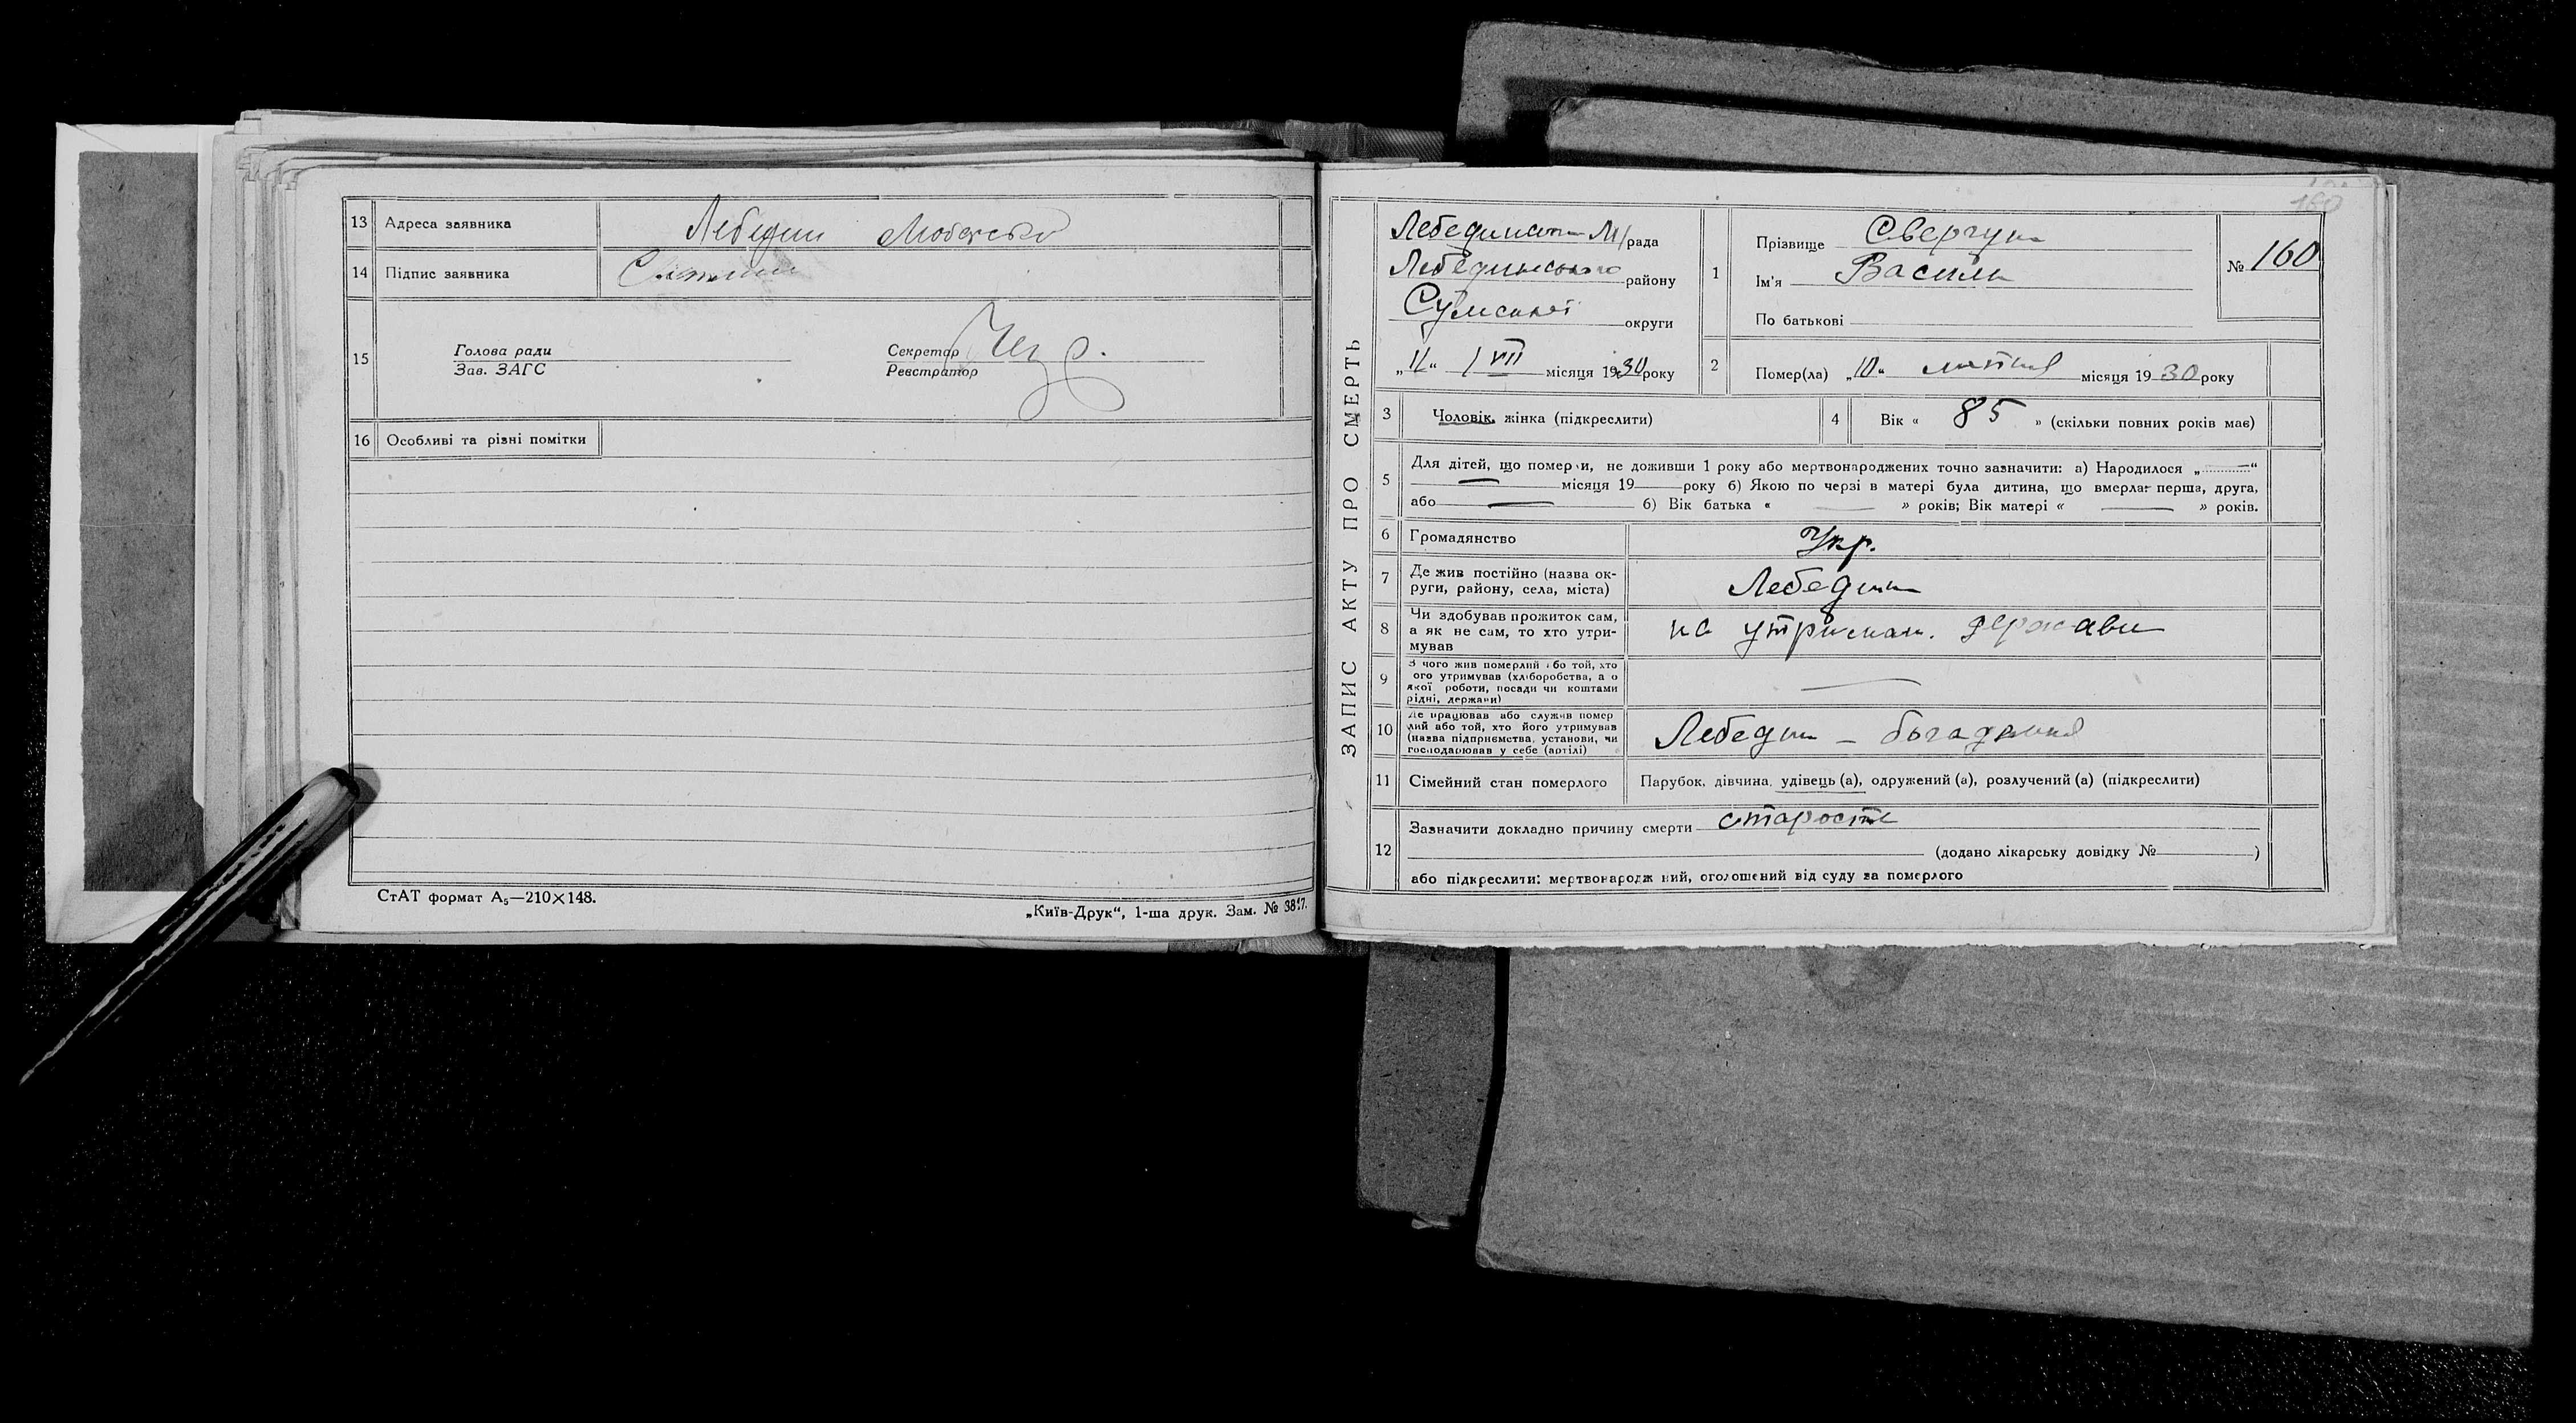 13 Адреса заявника Лебедин
14 Підпис заявника
15 Голова ради
Зав. ЗАГС
Секретар
Реєстратор
16 Особливі та різні помітки
СтАТ формат А₅—210×148.
„Київ-Друк“, 1-ша друк. Зам. №
160
ЗАПИС АКТУ ПРО СМЕРТЬ
рада
Лебединського району
Сумської округи
„11“ VII місяця 1930 року
1 Прізвище Свергун
Ім'я Василь
По батькові
№ 160
2 Помер(ла) „10“ липня місяця 1930 року
3 Чоловік, жінка (підкреслити)
4 Вік « 85 » (скільки повних років має)
5 Для дітей, що померли, не доживши 1 року або мертвонароджених точно зазначити: а) Народилося „—“
— місяця 19 року б) Якою по черзі в матері була дитина, що вмерла: перша, друга,
або — б) Вік батька « — » років; Вік матері « — » років.
6 Громадянство Укр.
7 Де жив постійно (назва ок-
руги, району, села, міста) Лебедин
8 Чи здобував прожиток сам,
а як не сам, то хто утри-
мував на утриман. держави
9 З чого жив померлий або той, хто
його утримував (хліборобства, а о
якої роботи, посади чи коштами
рідні, держави) —
10 Де працював або служив помер
лий або той, хто його утримував
(назва підприємства, установи, чи
господарював у себе (артілі) Лебедин — богадільня
11 Сімейний стан померлого Парубок, дівчина, удівець (а), одружений (а), розлучений (а) (підкреслити)
12 Зазначити докладно причину смерти старость
(додано лікарську довідку № )
або підкреслити: мертвонародж ний, оголошений від суду за померлого